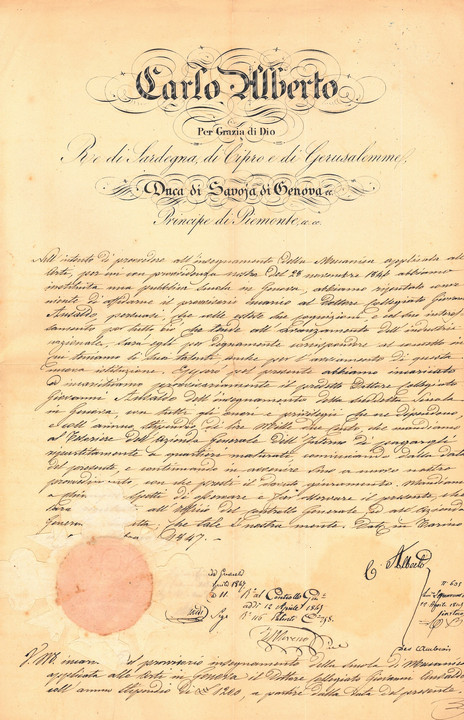 Carlo Alberto
Per Grazia di Dio
Re di Sardegna, di Cipro e di Gerusalemme,
Duca di Savoja, di Genova ec.
Principe di Piemonte, ec. ec.
Nell'intento di provvedere all'insegnamento della Meccanica applicata alle
Arti, per cui con provvidenza nostra del 28 novembre 1846 abbiamo
instituita una pubblica Scuola in Genova, abbiamo riputato conve
niente di affidarne il provvisorio incarico al Dottore Collegiato Giovanni
Ansaldo, persuasi, che colle estese sue cognizioni, e col suo interes
samento per tutto ciò che tende all'avanzamento dell'industria
nazionale, sarà egli per degnamente corrispondere al concetto in
cui teniamo li suoi talenti anche per l'avviamento di questa
nuova istituzione. Epperò pel presente abbiamo incaricato
ed incarichiamo provvisoriamente il predetto Dottore Collegiato
Giovanni Ansaldo dell'insegnamento della suddetta Scuola
in Genova, con tutti gli onori e privilegii che ne dipendono,
e coll'annuo stipendio di lire mille due cento, che mandiamo
al Tesoriere dell'Azienda Generale dell'Interno di pagargli
ripartitamente a quartieri maturati, cominciando dalla data
del presente, e continuando in avvenire sino a nuovo nostro
provvedimento, con che presti il dovuto giuramento. Mandiamo
a chiunque spetti di osservare e far osservare il presente, che
sarà all'Uffizio del Controllo Generale, ed all'Azienda
Generale che tale è nostra mente. Dat. in Torino
1847.
C. Alberto
1847
R.a al Controllo Gen.
addì 12 Aprile 1849
Moreno
V. M. incarica del provvisorio insegnamento della Scuola di Meccanica
applicata alle Arti in Genova il Dottore Collegiato Giovanni Ansaldo
coll'annuo stipendio di L. 1200, a partire dalla data del presente.